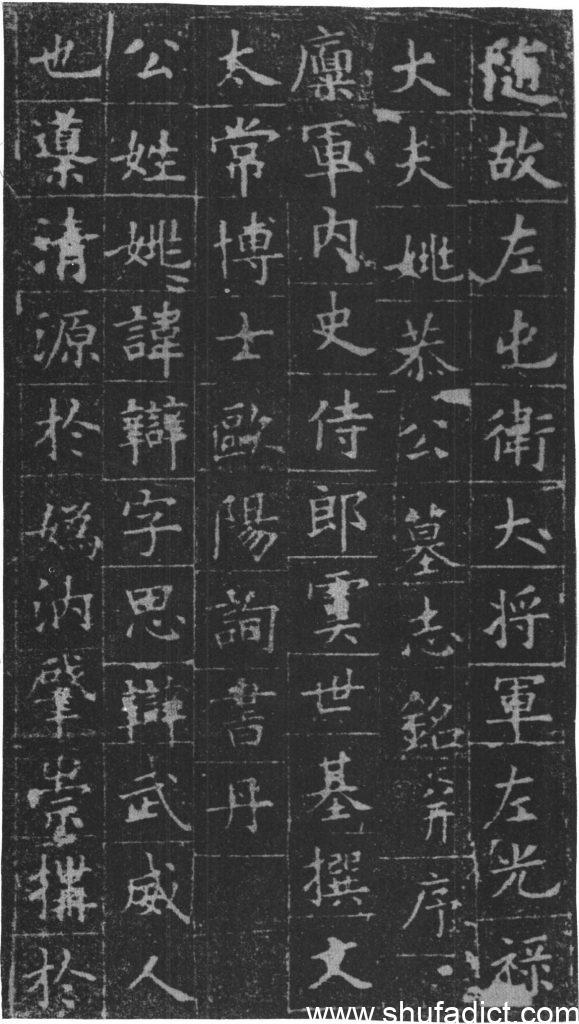 随故左屯衛大将軍左光禄
大夫姚恭公墓志銘并序
軍内史侍郎虞世基撰文
太常博士歐陽詢書丹
公姓姚諱辯字思辯武威人
也導清源於嬀汭肇崇搆於
www.shufadict.com